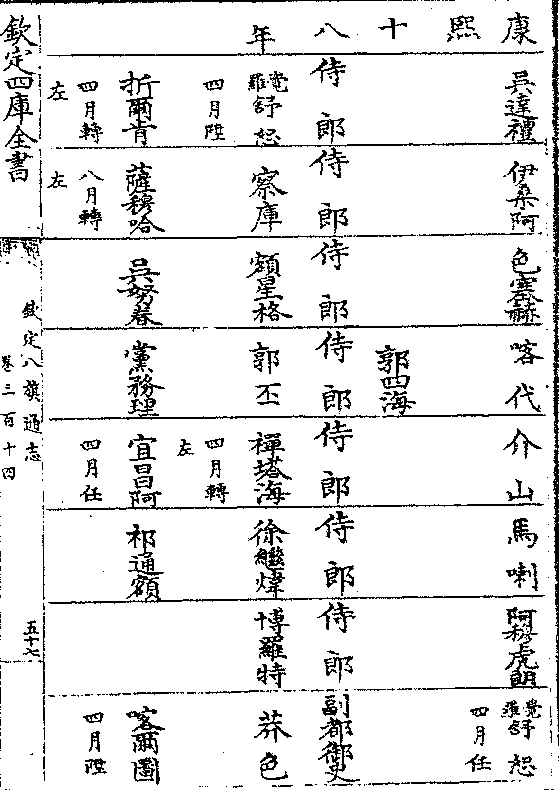 康熙十八年
吳達禮
伊桑阿
色塞赫
喀代
介山
馬喇
阿穆虎朗
覺羅舒恕
四月任
郭四海
侍郎
侍郎
侍郎
侍郎
侍郎
侍郎
侍郎
副都御史
覺羅舒恕
四月陞
察庫
額星格
郭丕
禪塔海
四月轉
左
徐繼煒
博羅特
莽色
折爾肯
四月轉
左
薩穆哈
八月轉
左
吳努春
黨務理
宜昌阿
四月任
祁通額
喀爾圖
四月陞
欽定四庫全書
欽定八旗通志
卷三百十四
五十七